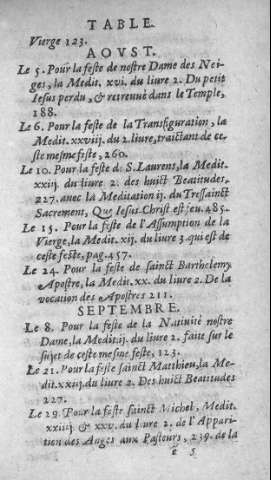 TABLE.
Vierge 123.
AOVST.
Le 5. Pour la feste de nostre Dame des Nei-
ges, la Medit. xvi. du liure 2. Du petit
Iesus perdu, & retreuué dans le Temple,
188.
Le 6. Pour la feste de la Transfiguration, la
Medit. xxviij. du 2. liure, traictant de ce-
ste mesme feste, 260.
Le 10. Pour la feste de S. Laurens, la Medit.
xxiij. du liure 2. des huict Beatitudes,
227. auec la Meditation ij. du Tressainct
Sacrement, Que Iesus-Christ est ieu. 485.
Le 15. Pour la feste de l'Assumption de la
Vierge, la Medit. xij. du liure 3. qui est de
ceste feste, pag. 457.
Le 24. Pour la feste de sainct Barthelemy
Apostre, la Medit. xx. du liure 2. De la
vocation des Apostres 211.
SEPTEMBRE.
Le 8. Pour la feste de la Natiuité nostre
Dame, la Medit. ij. du liure 2. faite sur le
sujet de ceste mesme feste, 123.
Le 21. Pour la feste sainct Matthieu, la Me-
dit. xxiij. du liure 2. Des huict Beatitudes
227.
Le 29. Pour la feste sainct Michel, Medit.
xxiiij. & xxv. du liure 2. de l'Appari-
tion des Anges aux Pasteurs, 239. de la
é 5